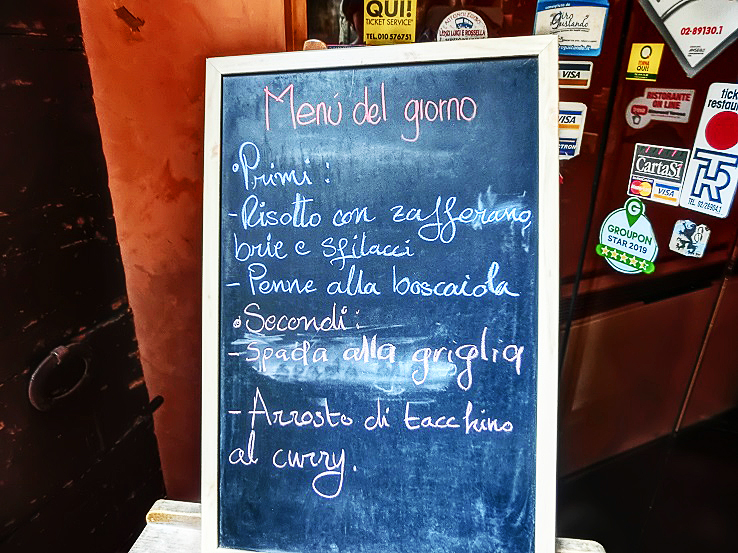 QUI!
TICKET SERVICE
TEL.010 576751
Menú del giorno
•Primi:
-Risotto con zafferano,
brie e sfilacci
-Penne alla boscaiola
•Secondi:
-Spada alla griglia
-Arrosto di tacchino
al curry.
gustando
02-89130.1
VISA
VISA
QUI!
RISTORANTE
ON LINE
CartaSi
MasterCard
VISA
TR
GROUPON
STAR 2019